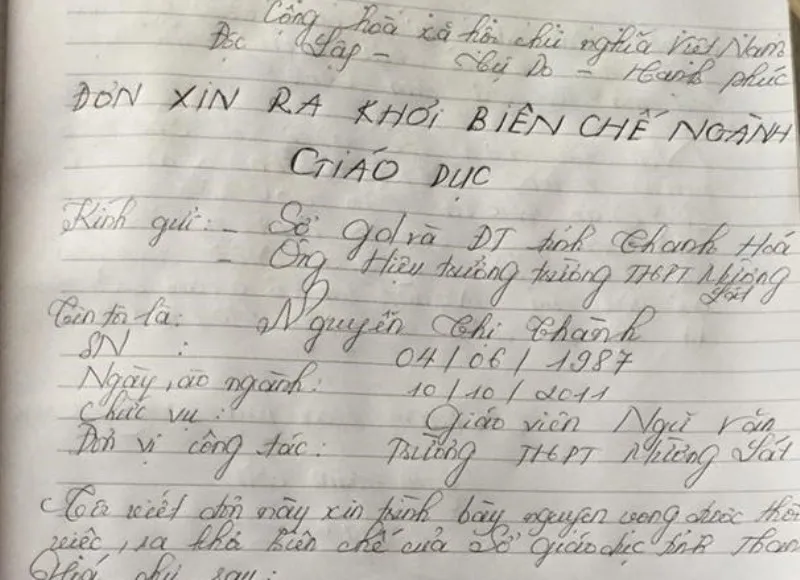 Cộng hoà xã hội chủ nghĩa Việt Nam
Độc lập - Tự Do - Hạnh phúc
ĐƠN XIN RA KHỎI BIÊN CHẾ NGÀNH
GIÁO DỤC
Kính gửi: - Sở gd và ĐT tỉnh Thanh Hoá
- Ông Hiệu trưởng trường THPT Mường Lát
Tên tôi là: Nguyễn Thị Thành
SN : 04/06/1987
Ngày vào ngành: 10/10/2011
Chức vụ: Giáo viên Ngữ văn
Đơn vị công tác: Trường THPT Mường Lát
Tôi viết đơn này xin trình bày nguyện vọng được thôi
việc, ra khỏi biên chế của Sở giáo dục tỉnh Thanh
Hoá như sau: